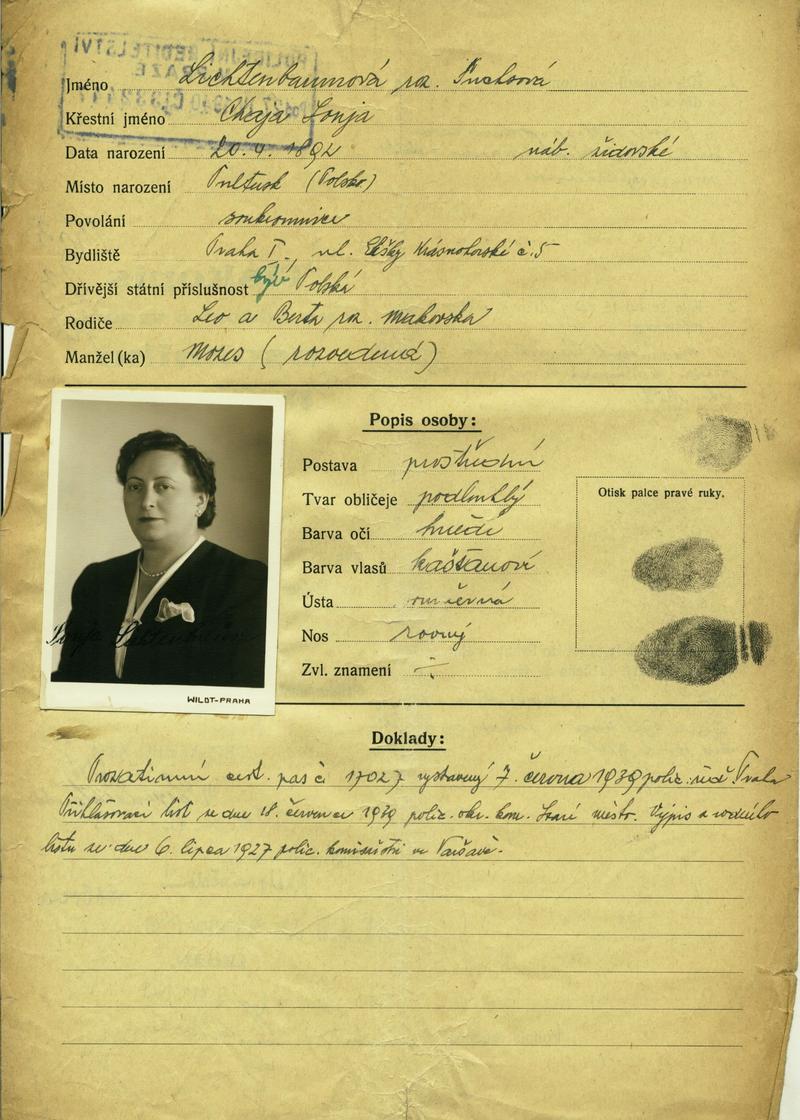 POLICEJNÍ ŘEDITELSTVÍ
V PRAZE
Jméno Lichtenbaumová roz.
Křestní jméno Chaja Sonja
Data narození 20.4.1892 náb. židovské
Místo narození Pultusk (Polsko)
Povolání soukromnice
Bydliště Praha I., ul. Elišky Krásnohorské č.5
Dřívější státní příslušnost býv. Polská
Rodiče Leo a Berta roz. Makovska
Manžel(ka) Moses (rozvedená)
Popis osoby:
Postava prostřední
Tvar obličeje podlouhlý
Otisk palce pravé ruky.
Barva očí hnědé
Barva vlasů kaštanové
Ústa úměrná
Nos rovný
Zvl. znamení ÷
Sonja
WILDT-PRAHA
Doklady:
Prozatimní cest. pas č. 17027 vystavený 7. června 1939 polic. řed. Praha
Přihlašovací list ze dne 18. července 1939 polic. okr. kom. Staré město. Výpis z rodného
listu ze dne 6. lipca 1927 polic. komisařství ve Varšavě.